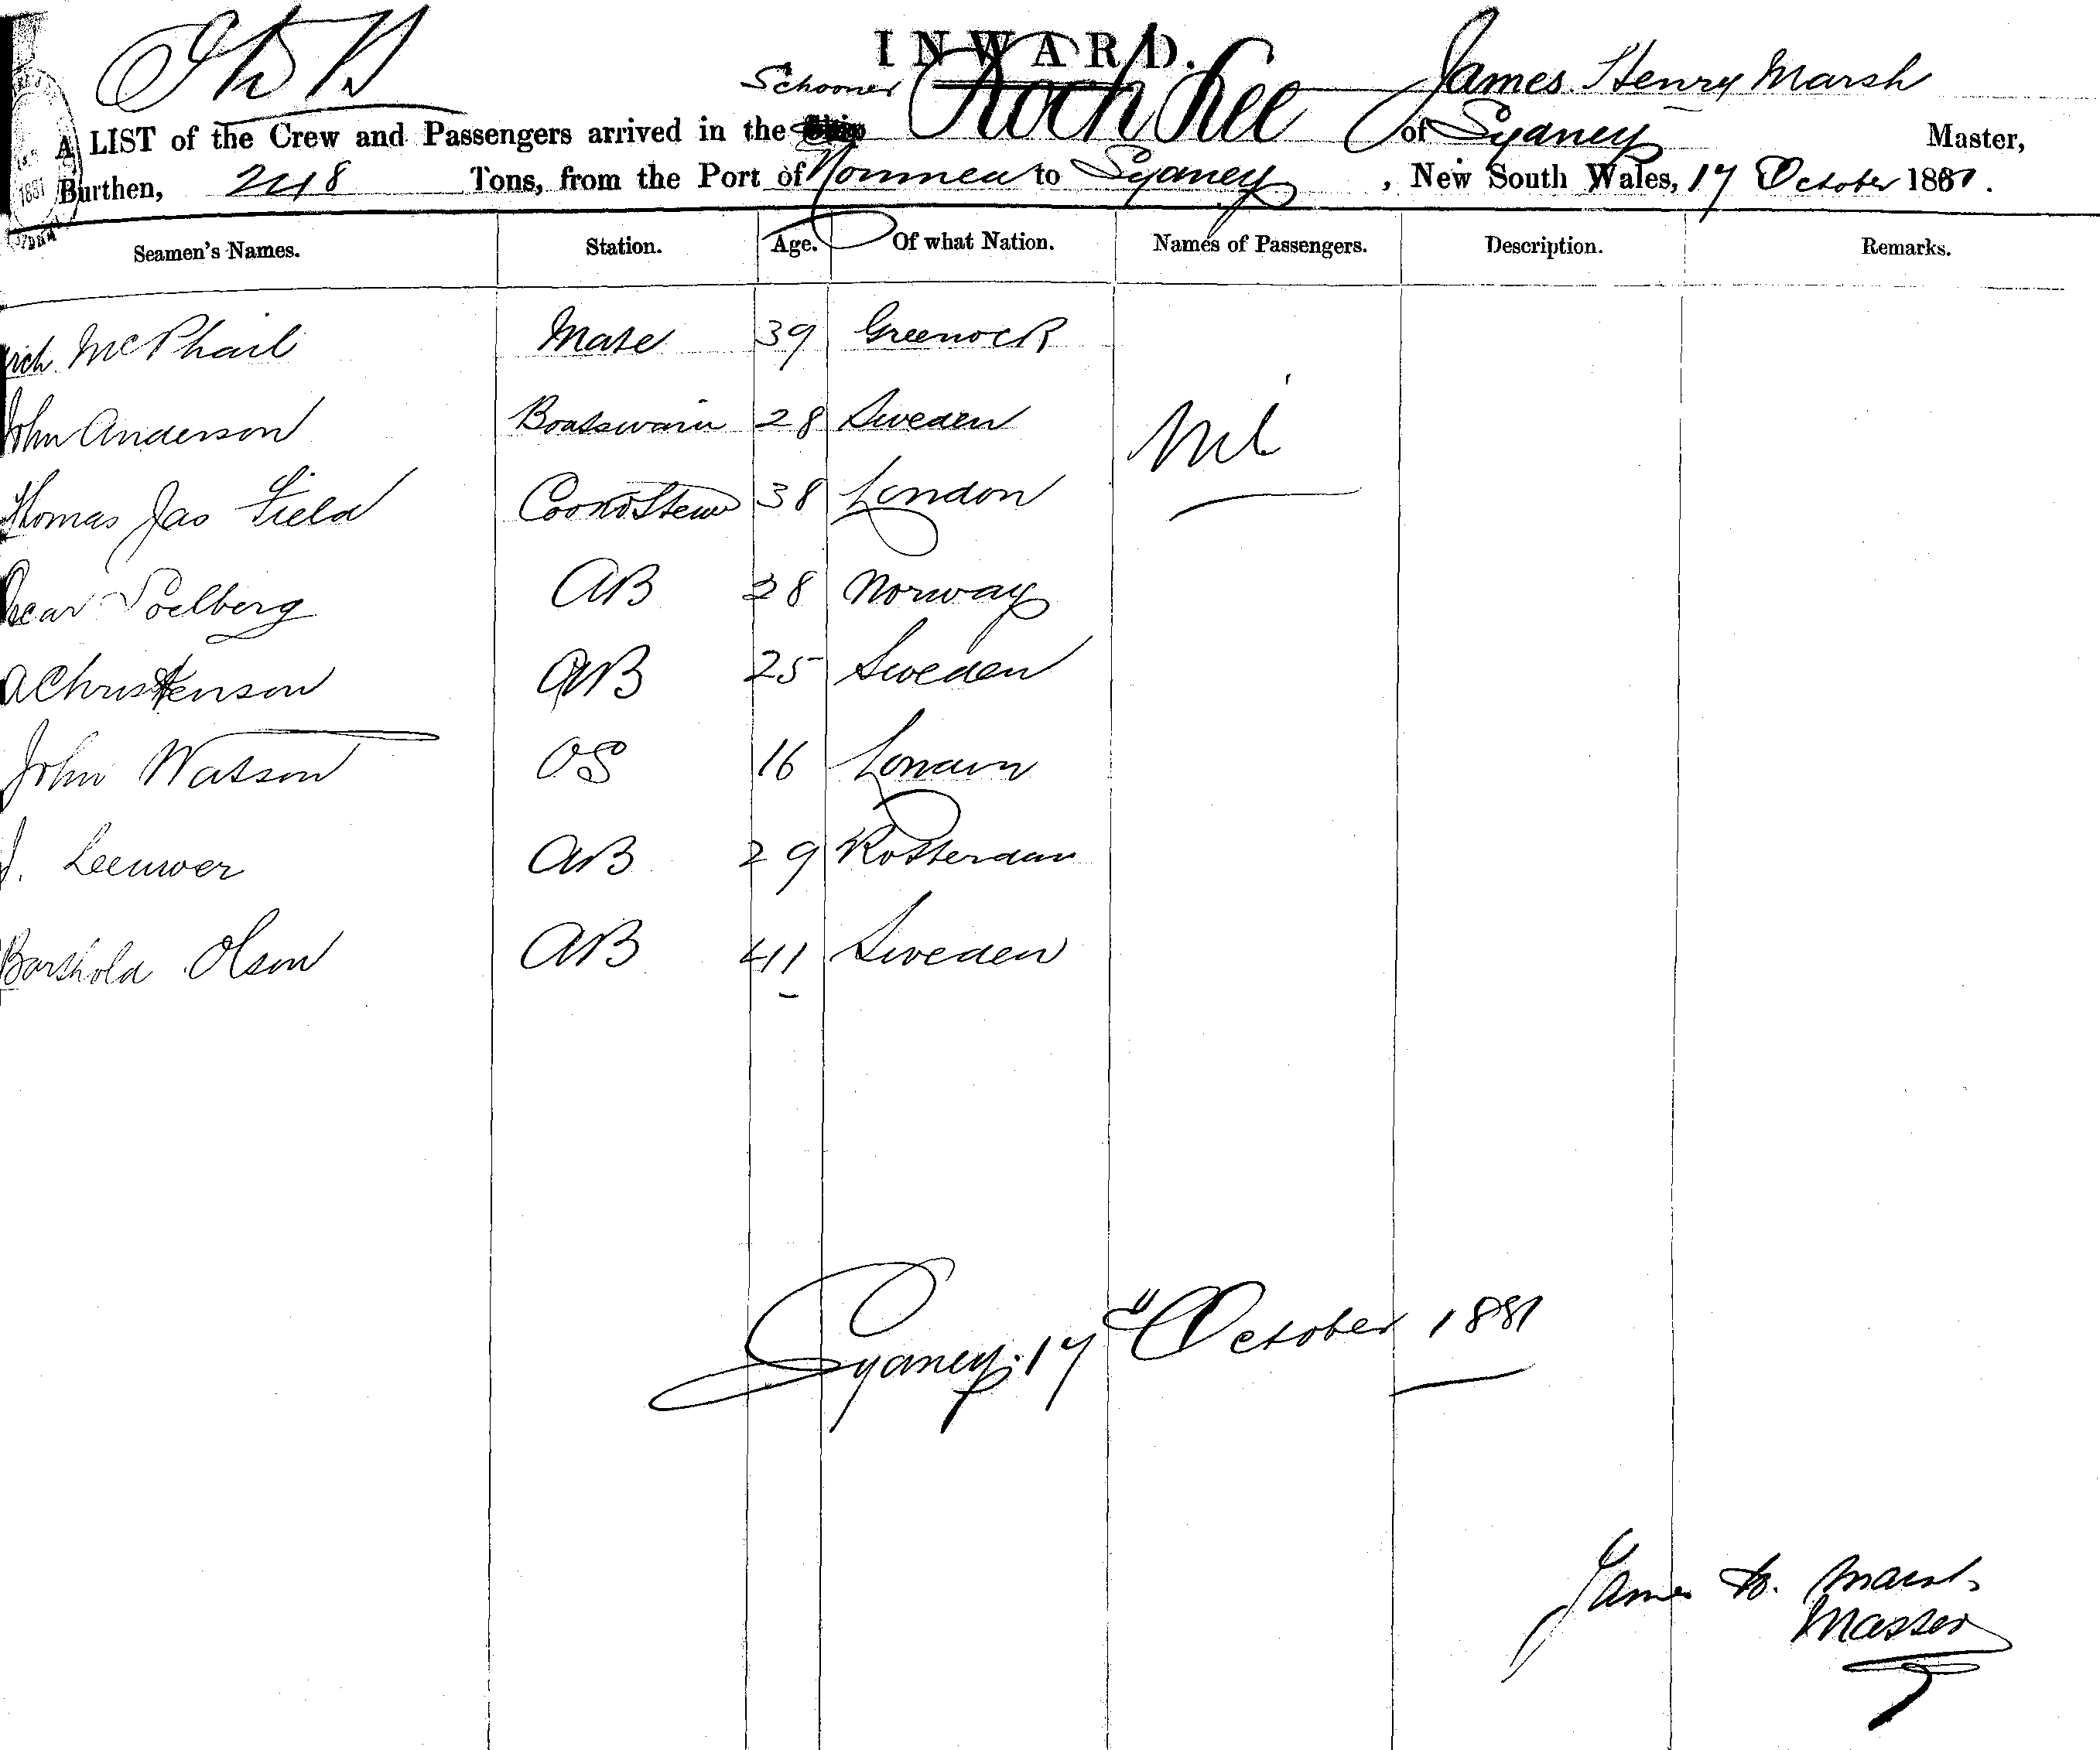 INWARD.
Schooner Loch Lee James Henry Marsh
A LIST of the Crew and Passengers arrived in the Ship of Sydney Master,
Burthen, 248 Tons, from the Port of Noumea to Sydney, New South Wales, 17 October 1881.
Seamen's Names. Station. Age. Of what Nation. Names of Passengers. Description. Remarks.
McPhail Mate 39 Greenock
John Anderson Boatswain 28 Sweden Nil
Thomas Jas Field Cook & Stew 38 London
Oscar Soelberg AB 28 Norway
A Christenson AB 25 Sweden
John Watson OS 16 London
J. Leeuwer AB 29 Rotterdam
Barthold Olson AB 41 Sweden
Sydney 17th October 1881
James H. Marsh
Master